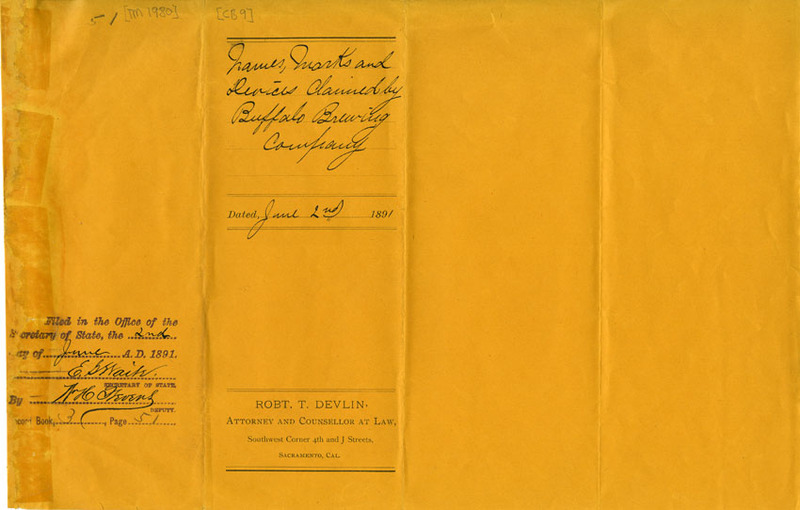 51 [TM 1980] [CB 9]
Names, Marks and
Devices Claimed by
Buffalo Brewing
Company
Dated, June 2nd 1891
Filed in the Office of the
Secretary of State, the 2nd
day of June A. D. 1891.
E. G. Waite
SECRETARY OF STATE,
By W H Stevens
DEPUTY.
Record Book, 3, Page 51
ROBT. T. DEVLIN,
ATTORNEY AND COUNSELLOR AT LAW,
Southwest Corner 4th and J Streets,
SACRAMENTO, CAL.